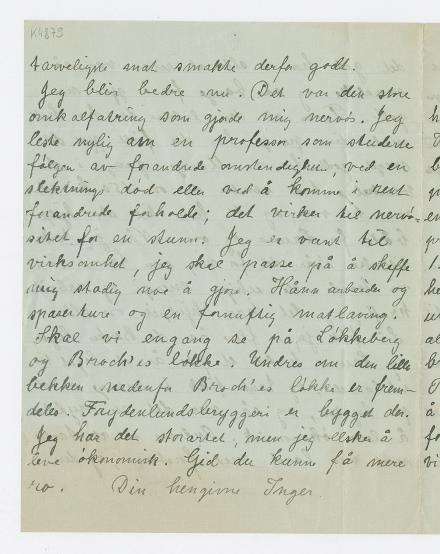 K4879
tarveligste mat smakte derfor godt.
Jeg blir bedre nu. Det var den store
omkalfatring som gjorde mig nervøs. Jeg
leste nylig om en professor som studerte
følgen av forandrede omstendigheter, ved en
slektnings død eller ved å komme i rent
forandrede forholde; det virker til nervø-
sitet for en stund. Jeg er vant til
virksomhet, jeg skal passe på å skaffe
mig stadig noe å gjøre. Håndarbeider og
spaserture og en fornuftig matlaving.
Skal vi engang se på Løkkeberg
og Broch'es løkke. Undres om den lille
bekken nedenfor Broch'es løkke er frem-
deles. Frydenlundsbryggeri er bygget der.
Jeg har det storartet, men jeg elsker å
leve økonomisk. Gid du kunne få mere
ro. Din hengivne Inger.